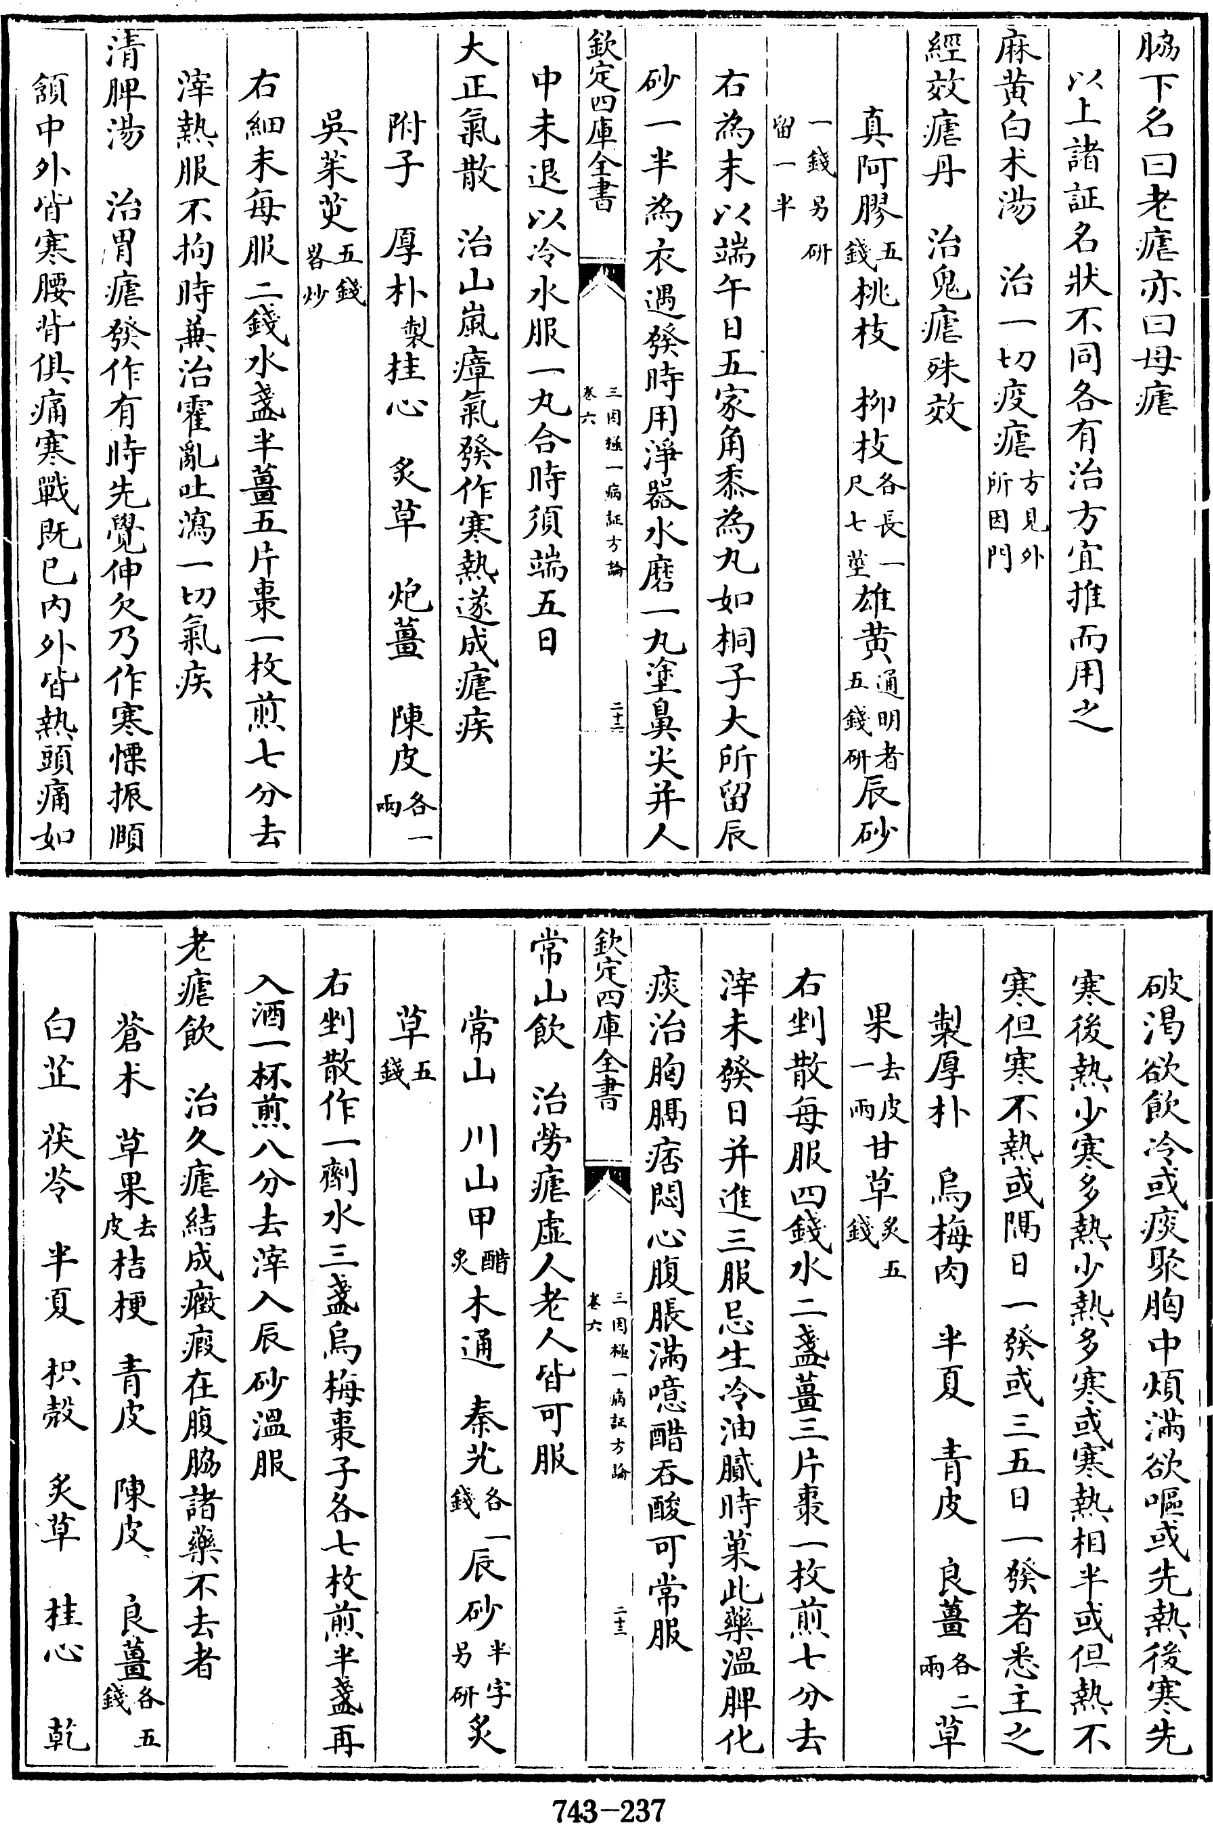 脇下名曰老瘧亦曰母瘧
以上諸証名狀不同各有治方宜推而用之
麻黄白术湯　治一切疫瘧方見外所因門
經效瘧丹　治鬼瘧殊效
真阿膠五錢桃枝　栁枝各長一尺七莖雄黄通明者五錢研辰砂
一錢另研留一半
右為末以端午日五家角黍為丸如桐子大所留辰
砂一半為衣遇發時用淨器水磨一丸塗鼻尖并人
欽定四庫全書　三因極一病証方論　卷六　二十二
中未退以冷水服一丸合時須端五日
大正氣散　治山嵐瘴氣發作寒熱遂成瘧疾
附子　厚朴製桂心　炙草　炮薑　陳皮各一兩
吳茱萸五錢畧炒
右細末每服二錢水盞半薑五片棗一枚煎七分去
滓熱服不拘時兼治霍亂吐瀉一切氣疾
清脾湯　治胃瘧發作有時先覺伸欠乃作寒慄振順
頷中外皆寒腰背俱痛寒戰既已内外皆熱頭痛如
破渴欲飲冷或痰聚胸中煩滿欲嘔或先熱後寒先
寒後熱少寒多熱少熱多寒或寒熱相半或但熱不
寒但寒不熱或隔日一發或三五日一發者悉主之
製厚朴　烏梅肉　半夏　青皮　良薑各二兩草
果去皮一兩甘草炙五錢
右剉散每服四錢水二盞薑三片棗一枚煎七分去
滓未發日并進三服忌生冷油膩時菓此藥溫脾化
痰治胸膈痞悶心腹脹滿噫醋吞酸可常服
欽定四庫全書　三因極一病証方論　卷六　二十三
常山飲　治勞瘧虛人老人皆可服
常山　川山甲醋炙木通　秦艽各一錢辰砂半字另研炙
草五錢
右剉散作一劑水三盞烏梅棗子各七枚煎半盞再
入酒一杯煎八分去滓入辰砂溫服
老瘧飲　治久瘧結成癥瘕在腹脇諸藥不去者
蒼术　草果去皮桔梗　青皮　陳皮　良薑各五錢
白芷　茯苓　半夏　枳殼　炙草　桂心　乾
743-237